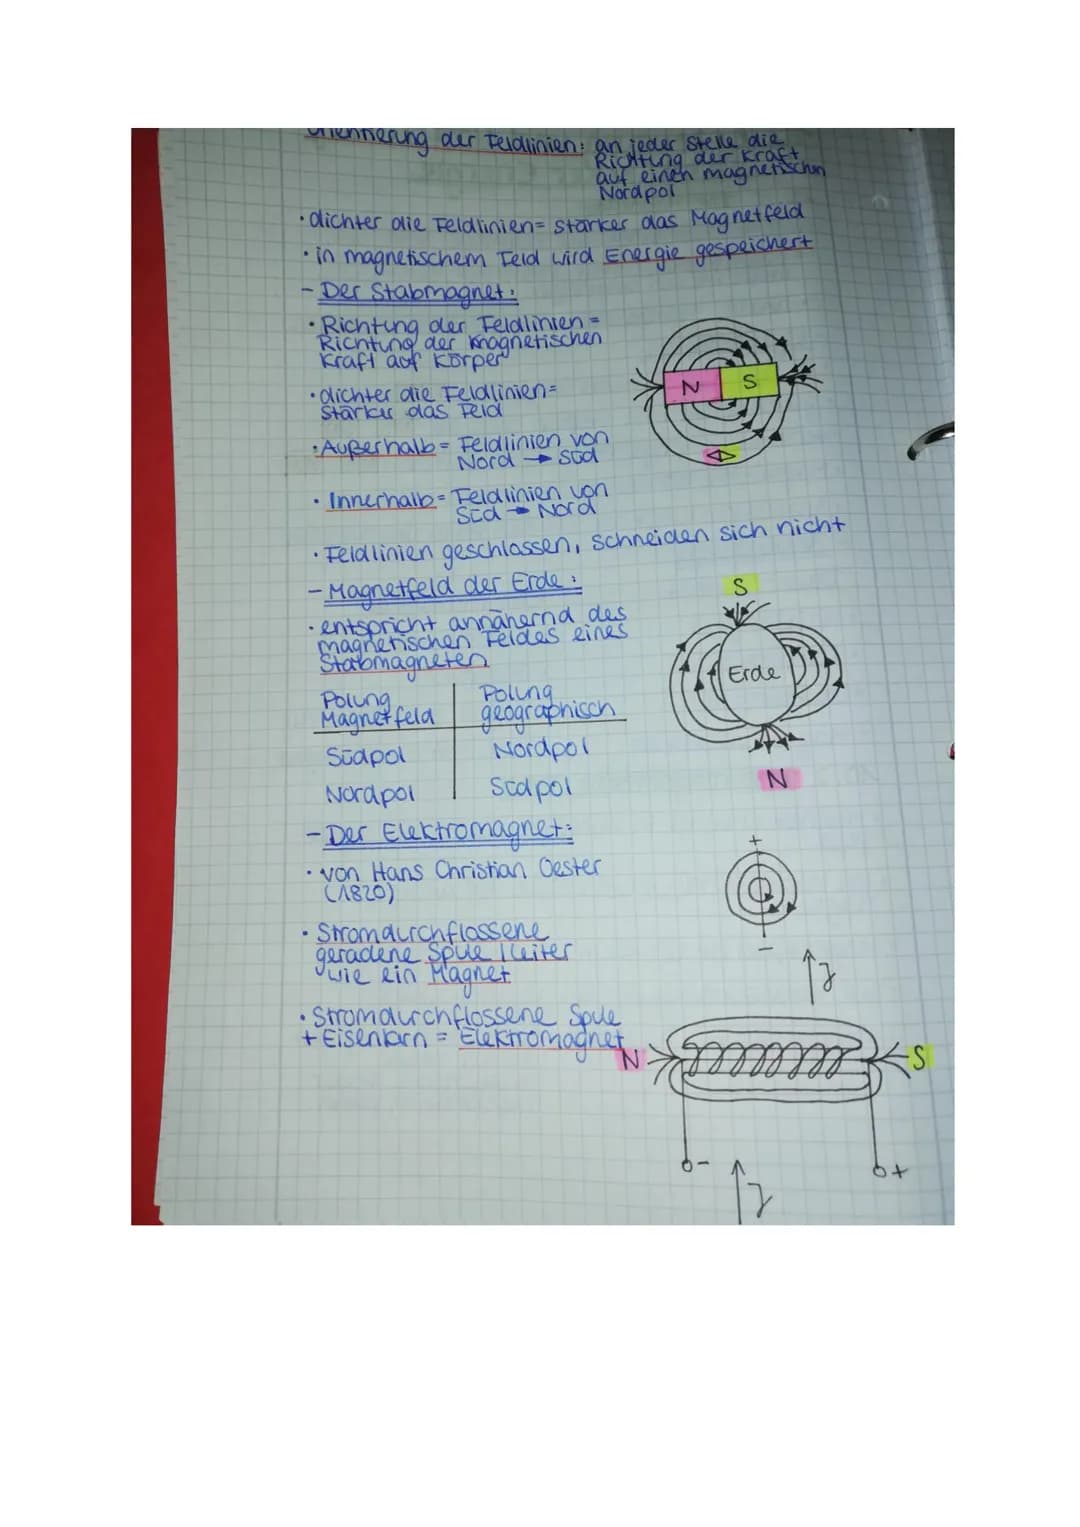 Orientierung der Feldlinien: an jeder Stelle die
Richtung der Kraft
auf einen magnetischen
Nordpol
· dichter die Feldlinien = stärker das Magnetfeld
· in magnetischem Feld wird Energie gespeichert
- Der Stabmagnet:
· Richtung der Feldlinien =
Richtung der magnetischen
Kraft auf Körper
· dichter die Feldlinien =
stärker das Feld
N S
· Außerhalb = Feldlinien von
Nord → Süd
· Innerhalb = Feldlinien von
Süd → Nord
· Feldlinien geschlossen, schneiden sich nicht
- Magnetfeld der Erde:
S
· entspricht annähernd des
magnetischen Feldes eines
Stabmagneten
Erde
Polung
Magnetfeld
Polung
geographisch
Südpol Nordpol
Nordpol Südpol
N
- Der Elektromagnet:
· von Hans Christian Oester
(1820)
+
-
· Stromdurchflossene
geradene Spule / Leiter
wie ein Magnet
· Stromdurchflossene Spule
+ Eisenkern = Elektromagnet
N S
- +